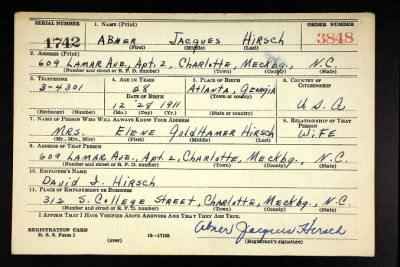 SERIAL NUMBER 1. NAME (Print) ORDER NUMBER
1742 ABNER JACQUES HIRSCH 3848
(First) (Middle) (Last)
2. ADDRESS (Print)
609 LAMAR AVE., APT. 2, CHARLOTTE, MECKBG., N.C.
(Number and street or R. F. D. number) (Town) (County) (State)
3. TELEPHONE 4. AGE IN YEARS 5. PLACE OF BIRTH 6. COUNTRY OF CITIZENSHIP
3-4301 28 ATLANTA, GEORGIA
DATE OF BIRTH (Town or county)
12 28 1911 U.S.A
(Exchange) (Number) (Mo.) (Day) (Yr.) (State or country)
7. NAME OF PERSON WHO WILL ALWAYS KNOW YOUR ADDRESS 8. RELATIONSHIP OF THAT PERSON
MRS. ELENE GOLDHAMER HIRSCH WIFE
(Mr., Mrs., Miss) (First) (Middle) (Last)
9. ADDRESS OF THAT PERSON
609 LAMAR AVE., APT. 2, CHARLOTTE, MECKBG., N.C.
(Number and street or R. F. D. number) (Town) (County) (State)
10. EMPLOYER'S NAME
DAVID J. HIRSCH
11. PLACE OF EMPLOYMENT OR BUSINESS
312 S. COLLEGE STREET, CHARLOTTE, MECKBG., N.C.
(Number and street or R. F. D. number) (Town) (County) (State)
I AFFIRM THAT I HAVE VERIFIED ABOVE ANSWERS AND THAT THEY ARE TRUE.
REGISTRATION CARD Abner Jacques Hirsch
D. S. S. Form 1 (over) 16—17105 (Registrant's signature)